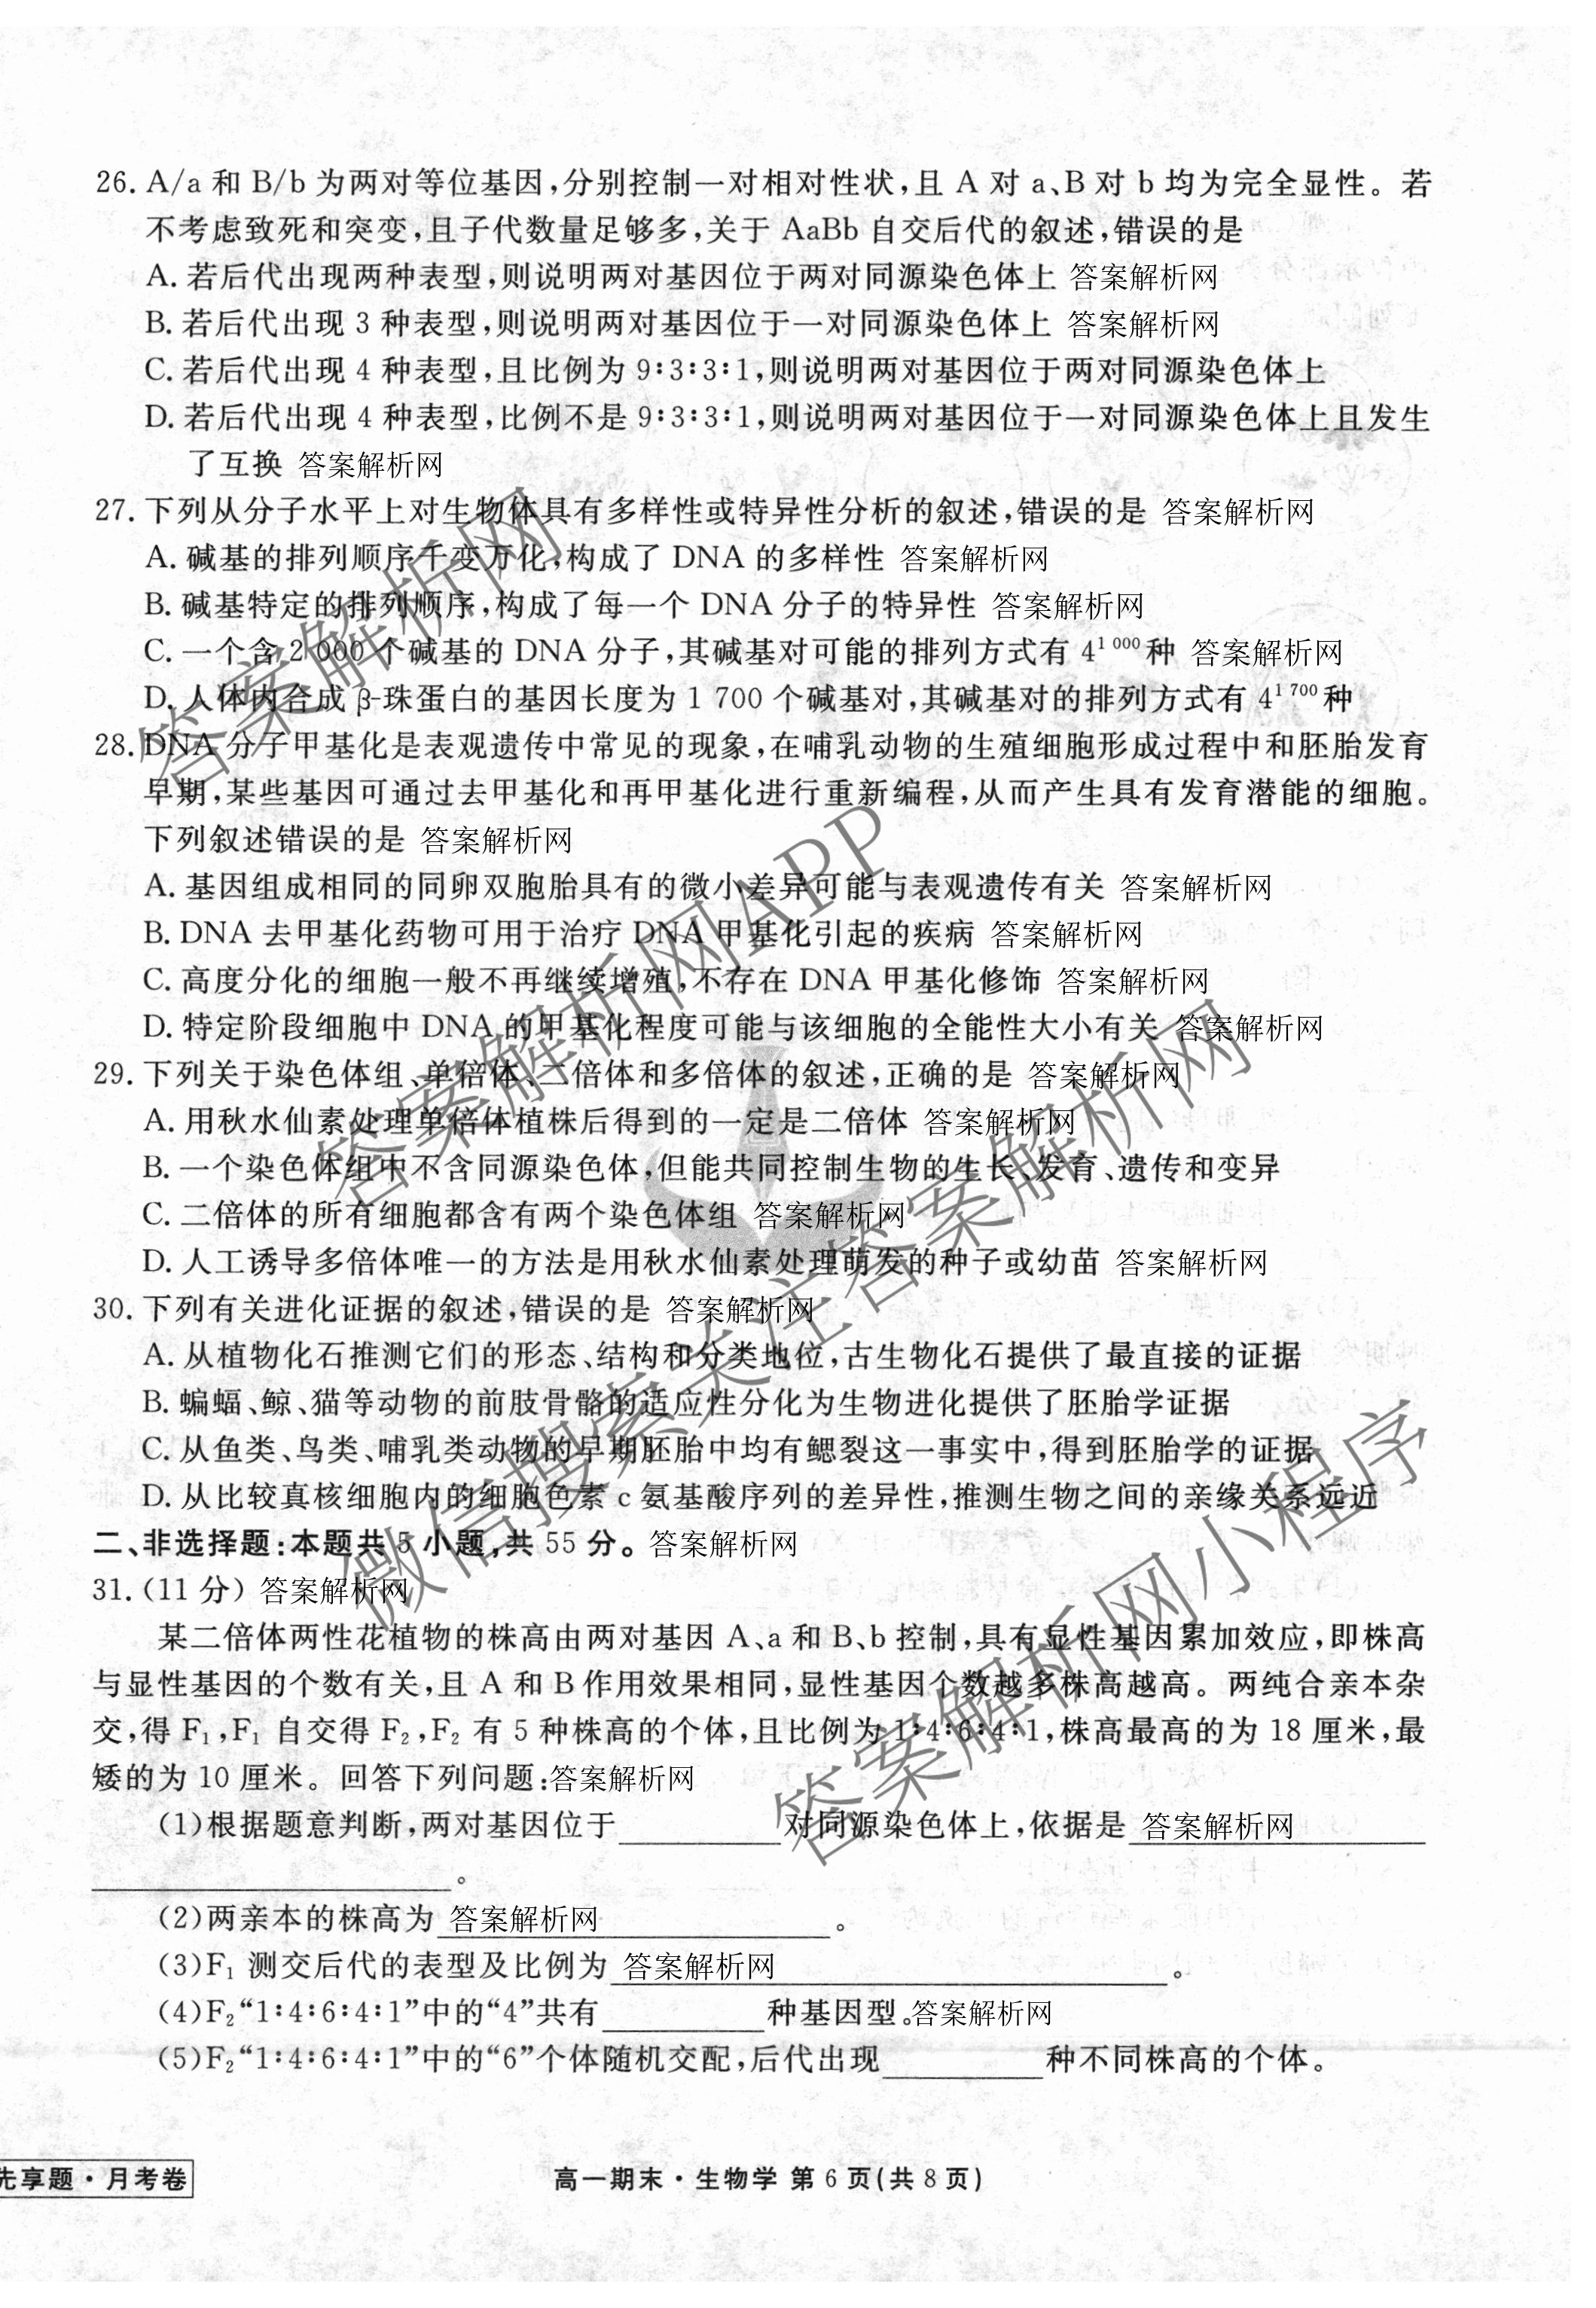 26. A/a 和 B/b 为两对等位基因,分别控制一对相对性状,且 A 对 a、B 对 b 均为完全显性。若
不考虑致死和突变,且子代数量足够多,关于 AaBb 自交后代的叙述,错误的是
A. 若后代出现两种表型,则说明两对基因位于两对同源染色体上 答案解析网
B. 若后代出现 3 种表型,则说明两对基因位于一对同源染色体上 答案解析网
C. 若后代出现 4 种表型,且比例为 9∶3∶3∶1,则说明两对基因位于两对同源染色体上
D. 若后代出现 4 种表型,比例不是 9∶3∶3∶1,则说明两对基因位于一对同源染色体上且发生
了互换 答案解析网
27. 下列从分子水平上对生物体具有多样性或特异性分析的叙述,错误的是 答案解析网
A. 碱基的排列顺序千变万化,构成了 DNA 的多样性 答案解析网
B. 碱基特定的排列顺序,构成了每一个 DNA 分子的特异性 答案解析网
C. 一个含 2 000 个碱基的 DNA 分子,其碱基对可能的排列方式有 4^1 000 种 答案解析网
D. 人体内合成 β-珠蛋白的基因长度为 1 700 个碱基对,其碱基对的排列方式有 4^1 700 种
28. DNA 分子甲基化是表观遗传中常见的现象,在哺乳动物的生殖细胞形成过程中和胚胎发育
早期,某些基因可通过去甲基化和再甲基化进行重新编程,从而产生具有发育潜能的细胞。
下列叙述错误的是 答案解析网
A. 基因组成相同的同卵双胞胎具有的微小差异可能与表观遗传有关 答案解析网
B. DNA 去甲基化药物可用于治疗 DNA 甲基化引起的疾病 答案解析网
C. 高度分化的细胞一般不再继续增殖,不存在 DNA 甲基化修饰 答案解析网
D. 特定阶段细胞中 DNA 的甲基化程度可能与该细胞的全能性大小有关 答案解析网
29. 下列关于染色体组、单倍体、二倍体和多倍体的叙述,正确的是 答案解析网
A. 用秋水仙素处理单倍体植株后得到的一定是二倍体 答案解析网
B. 一个染色体组中不含同源染色体,但能共同控制生物的生长、发育、遗传和变异
C. 二倍体的所有细胞都含有两个染色体组 答案解析网
D. 人工诱导多倍体唯一的方法是用秋水仙素处理萌发的种子或幼苗 答案解析网
30. 下列有关进化证据的叙述,错误的是 答案解析网
A. 从植物化石推测它们的形态、结构和分类地位,古生物化石提供了最直接的证据
B. 蝙蝠、鲸、猫等动物的前肢骨骼的适应性分化为生物进化提供了胚胎学证据
C. 从鱼类、鸟类、哺乳类动物的早期胚胎中均有鳃裂这一事实中,得到胚胎学的证据
D. 从比较真核细胞内的细胞色素 c 氨基酸序列的差异性,推测生物之间的亲缘关系远近
二、非选择题:本题共 5 小题,共 55 分。答案解析网
31. (11 分) 答案解析网
某二倍体两性花植物的株高由两对基因 A、a 和 B、b 控制,具有显性基因累加效应,即株高
与显性基因的个数有关,且 A 和 B 作用效果相同,显性基因个数越多株高越高。两纯合亲本杂
交,得 F₁,F₁ 自交得 F₂,F₂ 有 5 种株高的个体,且比例为 1∶4∶6∶4∶1,株高最高的为 18 厘米,最
矮的为 10 厘米。回答下列问题:答案解析网
(1)根据题意判断,两对基因位于__________对同源染色体上,依据是 答案解析网__________
____________________。
(2)两亲本的株高为 答案解析网__________。
(3)F₁ 测交后代的表型及比例为 答案解析网__________。
(4)F₂“1∶4∶6∶4∶1”中的“4”共有__________种基因型。答案解析网
(5)F₂“1∶4∶6∶4∶1”中的“6”个体随机交配,后代出现__________种不同株高的个体。
先享题·月考卷
高一期末·生物学 第 6 页(共 8 页)
答案解析网
答案解析网APP
微信搜索关注答案解析网
答案解析网小程序